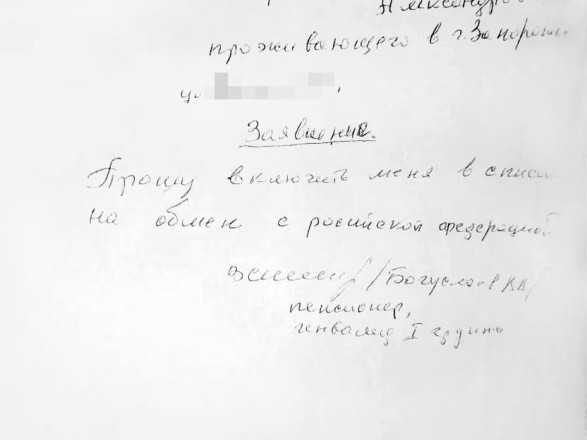 проживающего в г. Запорожь
ул.
Заявление.
Прошу включить меня в список
на обмен с росийской федерацией
/Богуслаев КА/
пенсионер,
инвалид I групы